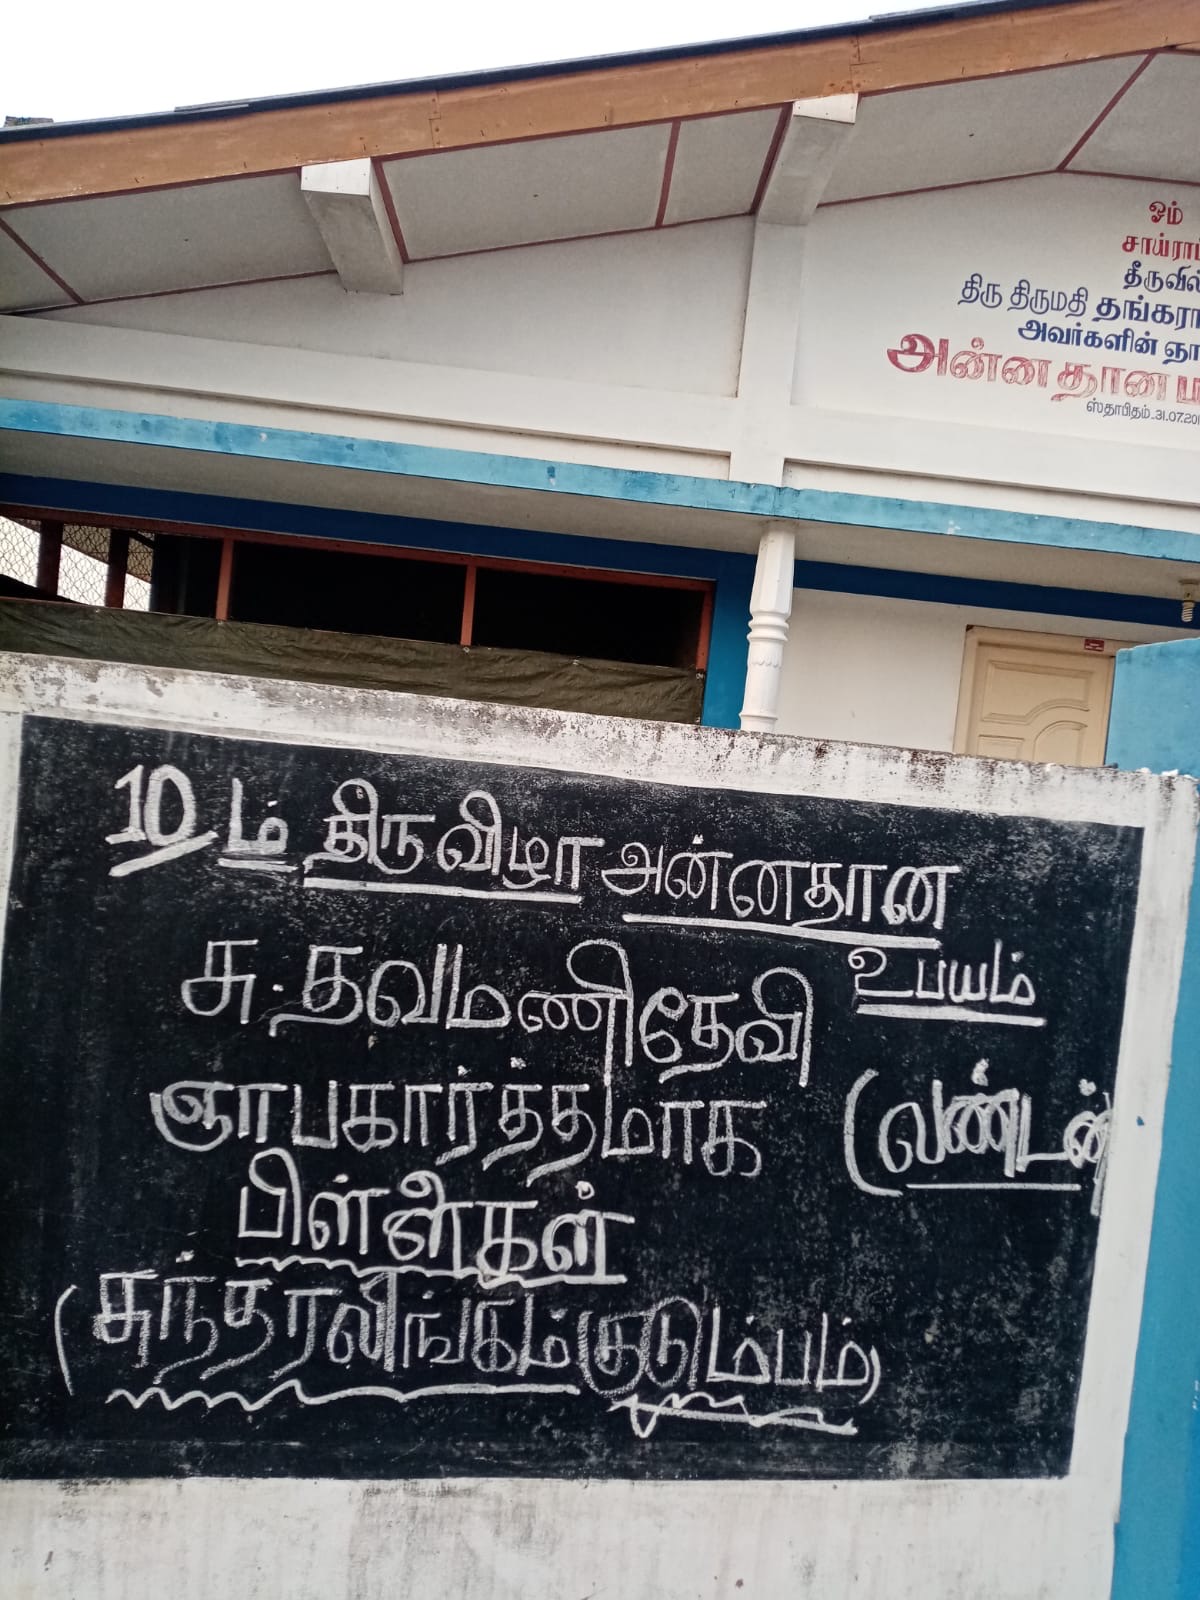 ஓம்
சாய்ராம்
தீருவில்
திரு திருமதி தங்கரா
அவர்களின் ஞா
அன்னதான ம
ஸ்தாபிதம்-31.07.201
10ம் திருவிழா அன்னதான
உபயம்
சு.தவமணிதேவி
ஞாபகார்த்தமாக (லண்டன்)
பிள்ளைகள்
(சுந்தரலிங்கம் குடும்பம்)